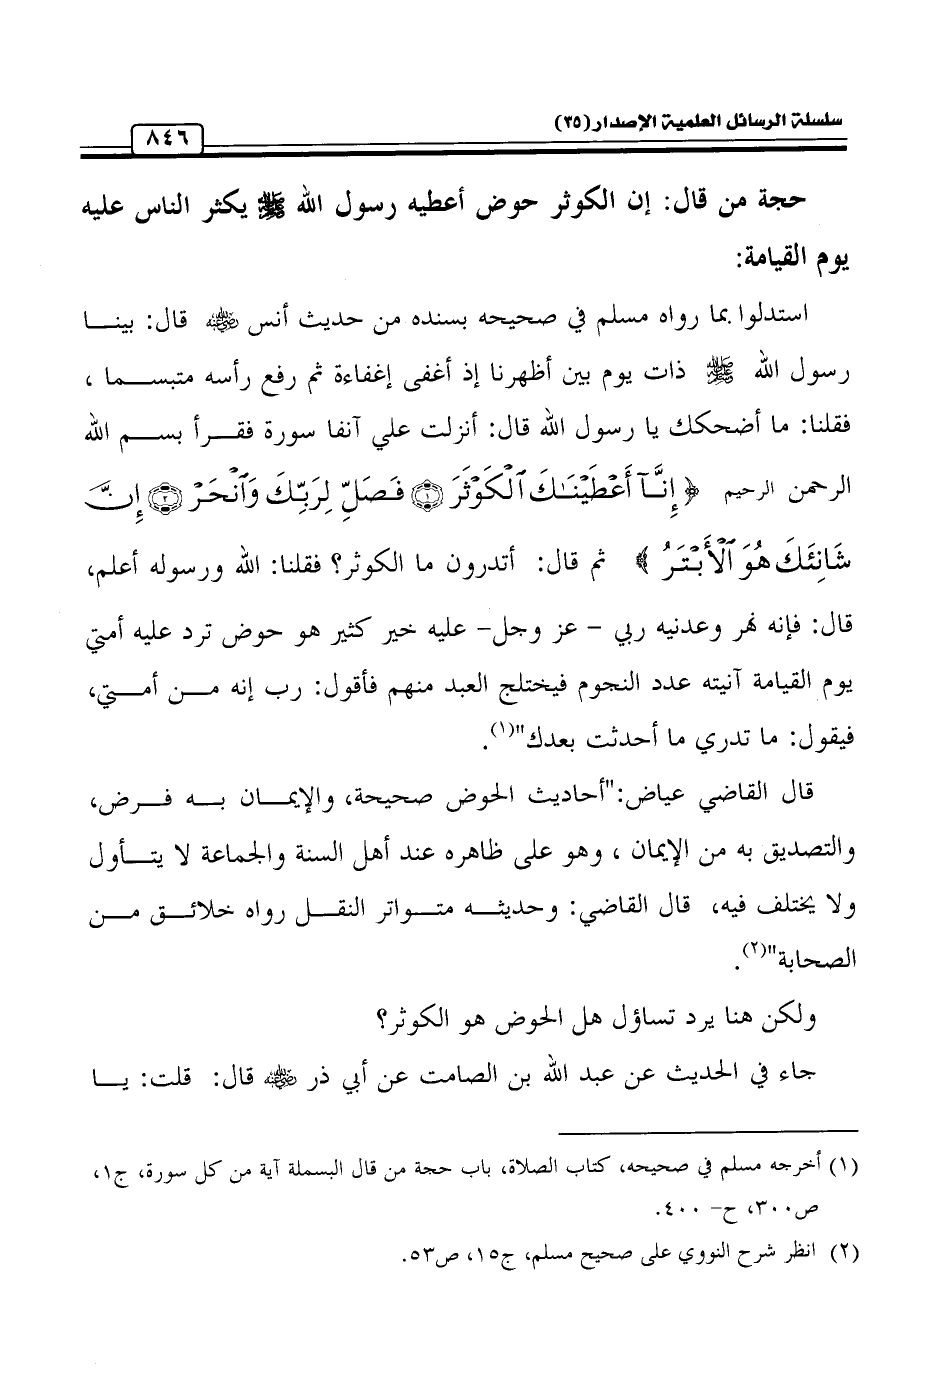 سلسلة الرسائل العلمية الإصدار (٣٥)
٨٤٦
حجة من قال: إن الكوثر حوض أعطيه رسول الله ﷺ يكثر الناس عليه
يوم القيامة:
استدلوا بما رواه مسلم في صحيحه بسنده من حديث أنس ﷺ قال: بينا
رسول الله ﷺ ذات يوم بين أظهرنا إذ أغفى إغفاءة ثم رفع رأسه متبسما ،
فقلنا: ما أضحكك يا رسول الله قال: أنزلت علي آنفا سورة فقرأ بسم الله
الرحمن الرحيم ﴿ إِنَّآ أَعْطَيْنَـٰكَ ٱلْكَوْثَرَ ۝١ فَصَلِّ لِرَبِّكَ وَٱنْحَرْ ۝٢ إِنَّ
شَانِئَكَ هُوَ ٱلْأَبْتَرُ ﴾ ثم قال: أتدرون ما الكوثر؟ فقلنا: الله ورسوله أعلم،
قال: فإنه نهر وعدنيه ربي – عز وجل– عليه خير كثير هو حوض ترد عليه أمتي
يوم القيامة آنيته عدد النجوم فيختلج العبد منهم فأقول: رب إنه من أمتي،
فيقول: ما تدري ما أحدثت بعدك"(١).
قال القاضي عياض:"أحاديث الحوض صحيحة، والإيمان به فرض،
والتصديق به من الإيمان ، وهو على ظاهره عند أهل السنة والجماعة لا يتأول
ولا يختلف فيه، قال القاضي: وحديثه متواتر النقل رواه خلائق من
الصحابة"(٢).
ولكن هنا يرد تساؤل هل الحوض هو الكوثر؟
جاء في الحديث عن عبد الله بن الصامت عن أبي ذر ﷺ قال: قلت: يا
(١) أخرجه مسلم في صحيحه، كتاب الصلاة، باب حجة من قال البسملة آية من كل سورة، ج١،
ص٣٠٠، ح– ٤٠٠.
(٢) انظر شرح النووي على صحيح مسلم، ج١٥، ص٥٣.